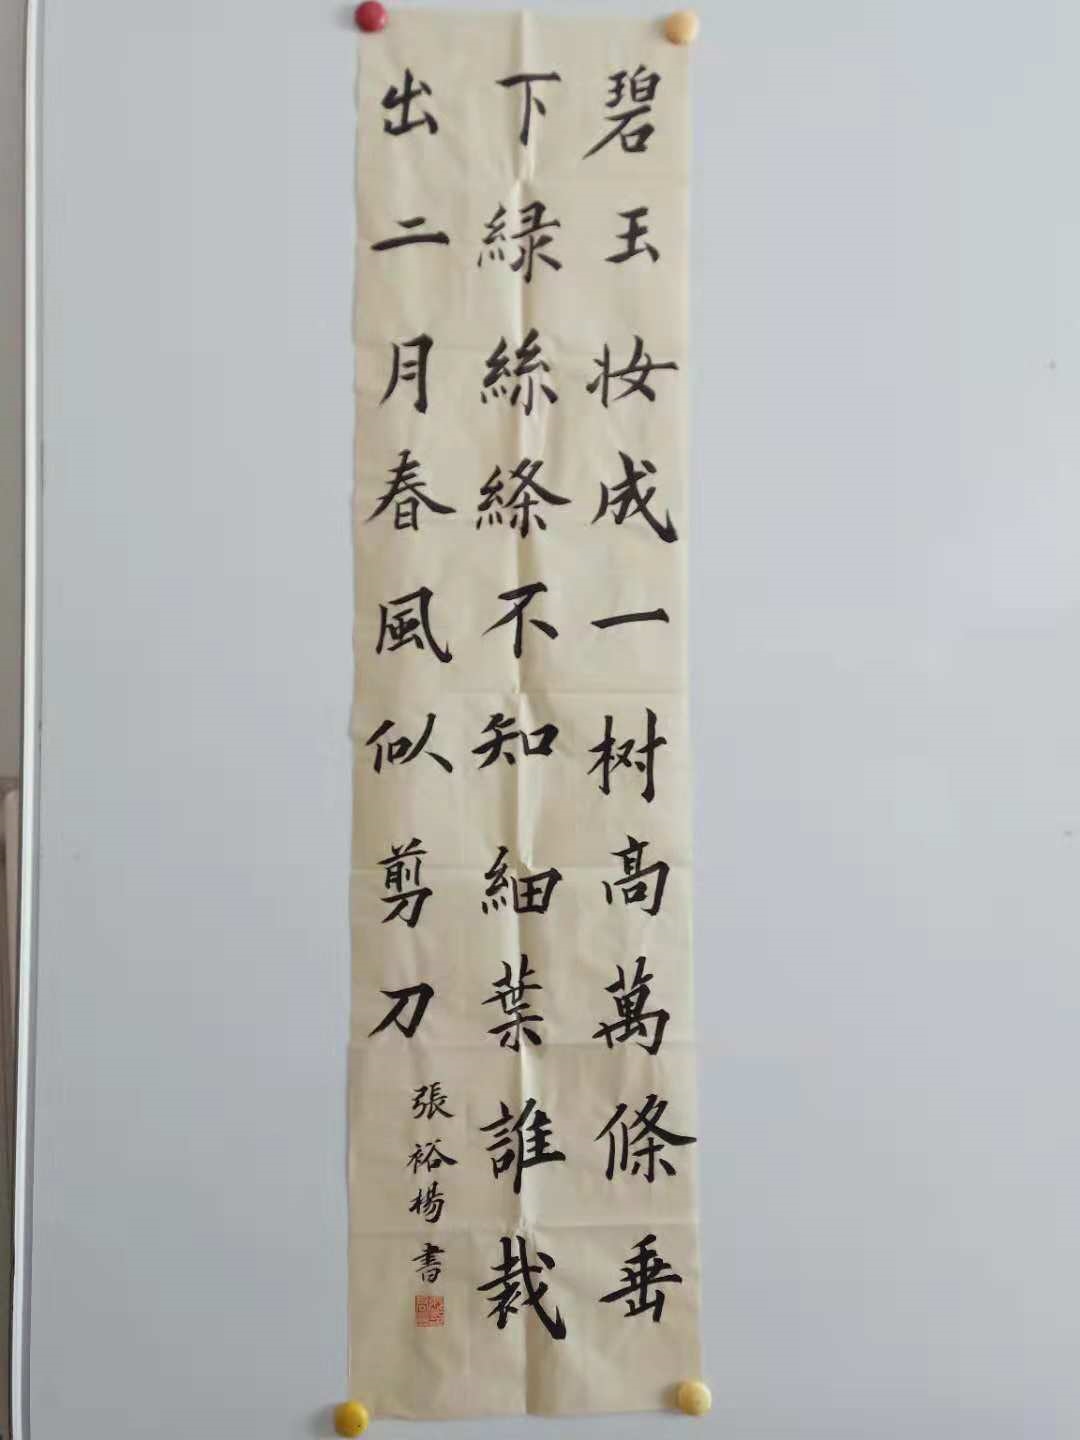 碧玉妆成一树高萬條垂
下緑絲絛不知細葉誰裁
出二月春風似剪刀
張裕楊書